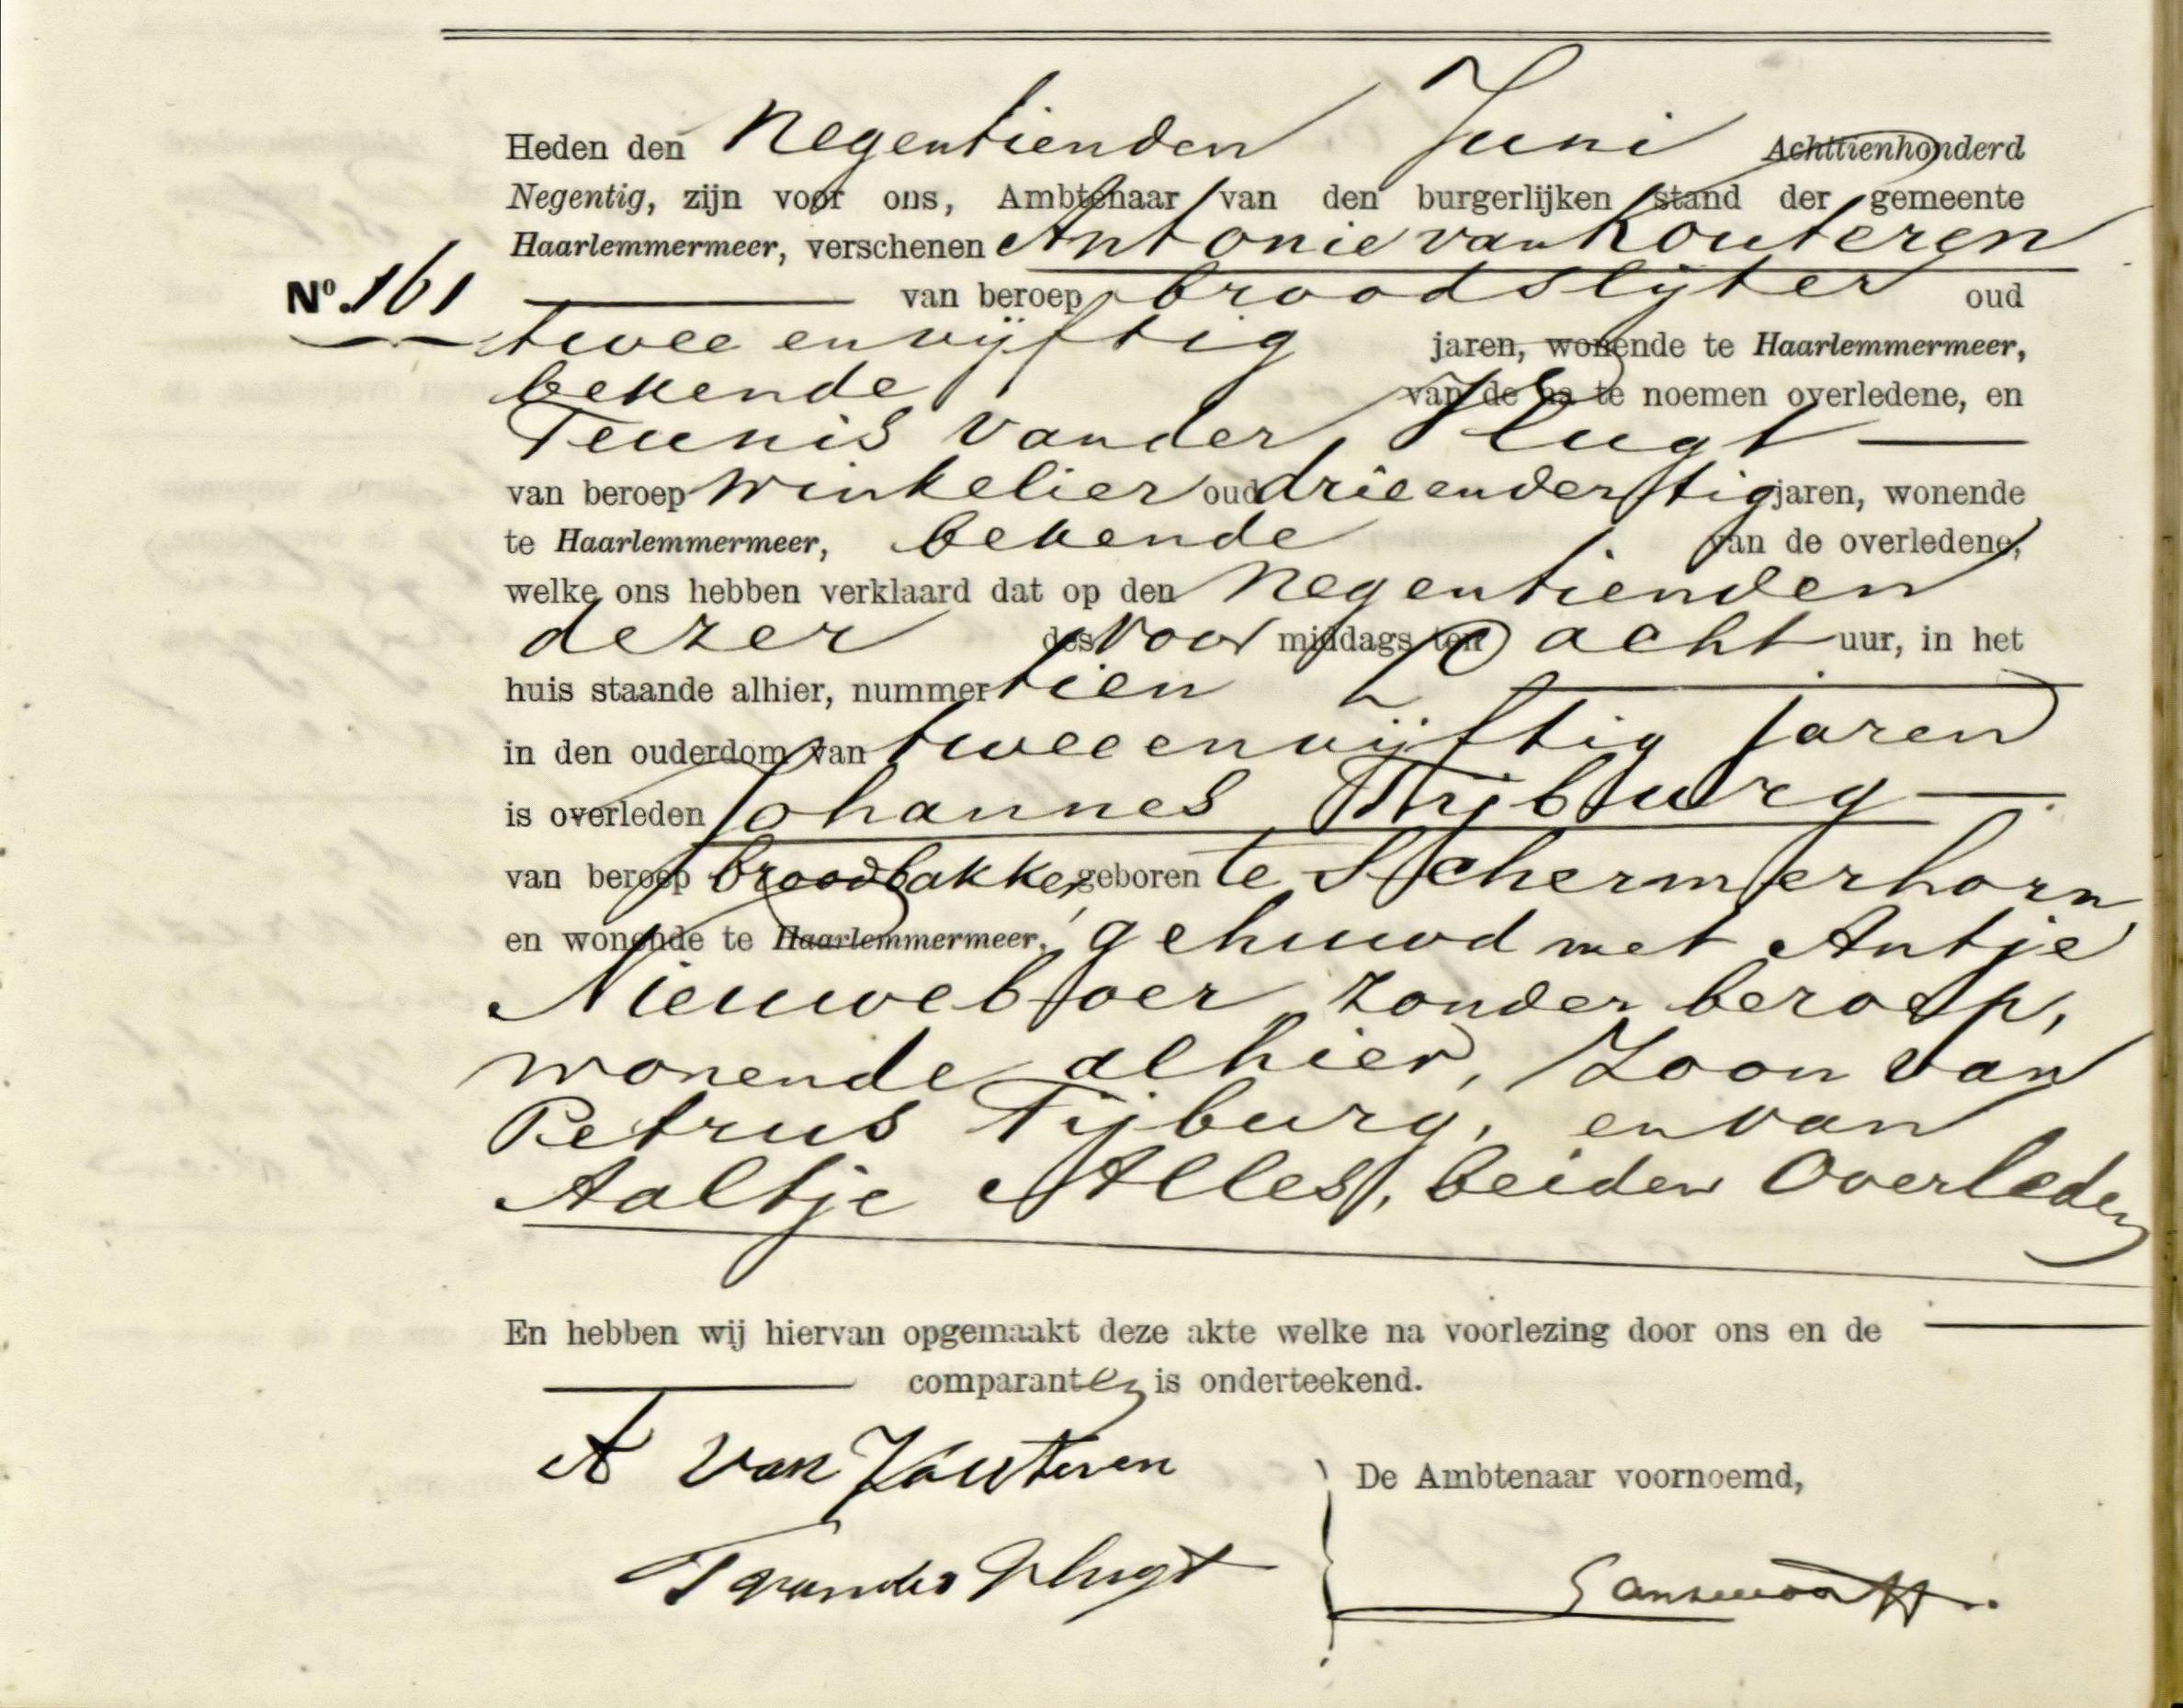 Heden den Negentienden Juni Achttienhonderd
Negentig, zijn voor ons, Ambtenaar van den burgerlijken stand der gemeente
Haarlemmermeer, verschenen Antonie van Kouteren
No. 161 van beroep broodslijter oud
twee en vijftig jaren, wonende te Haarlemmermeer,
bekende van de na te noemen overledene, en
Teunis van der Plugt
van beroep winkelier oud drie en dertig jaren, wonende
te Haarlemmermeer, bekende van de overledene,
welke ons hebben verklaard dat op den negentienden
dezer des voor middags ten acht uur, in het
huis staande alhier, nummer tien
in den ouderdom van twee en vijftig jaren
is overleden Johannes Tijburg
van beroep broodbakker, geboren te Schermerhorn
en wonende te Haarlemmermeer, gehuwd met Antje
Nieuweboer, zonder beroep,
wonende alhier, Zoon van
Petrus Tijburg, en van
Aaltje Alles, beiden Overleden
En hebben wij hiervan opgemaakt deze akte welke na voorlezing door ons en de
comparanten is onderteekend.
A van Kouteren
De Ambtenaar voornoemd,
T van der Plugt